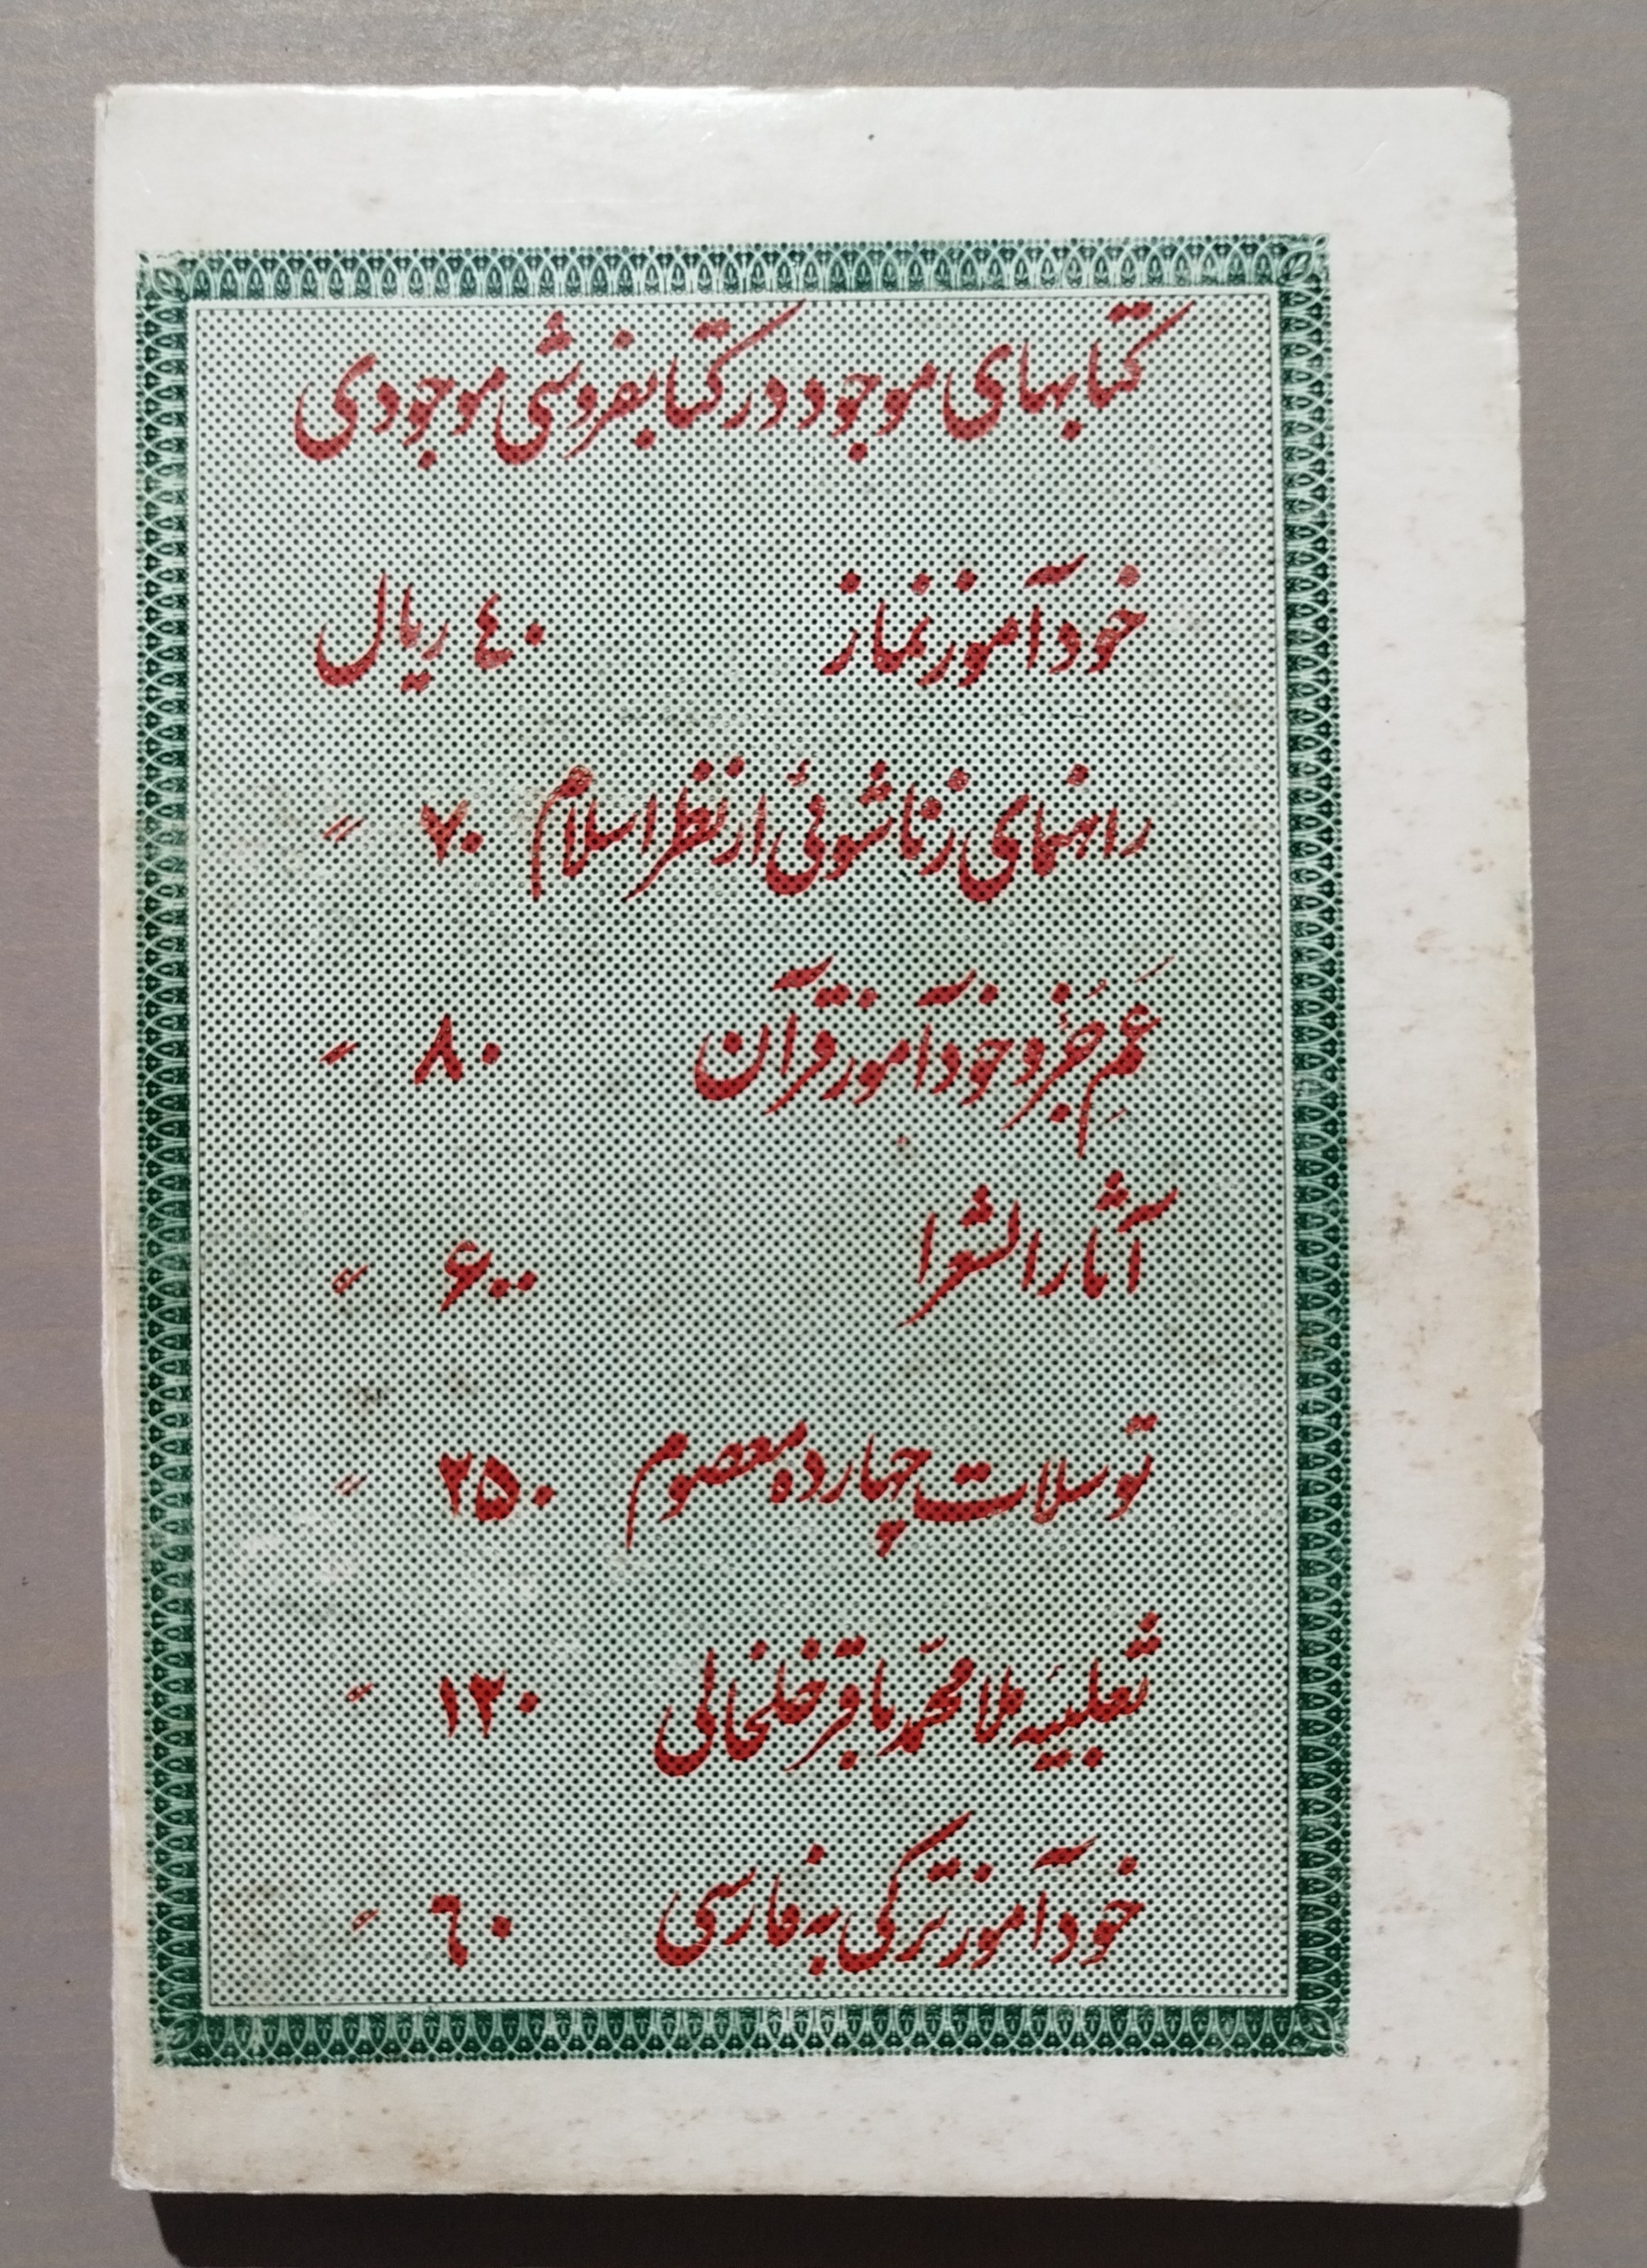 کتابهای موجود در کتابفروشی موجودی
خودآموز نماز ٤٠ ریال
راهنمای زناشوئی از نظر اسلام ۷۰ "
عَمِّ جَزْو خودآموز قرآن ۸۰ "
آثار الشعرا ۶۰۰ "
توسلات چهارده معصوم ۲۵۰ "
ثعلبیّه ملا محمّد باقر خلخالی ۱۲۰ "
خودآموز ترکی به فارسی ٦٠ "